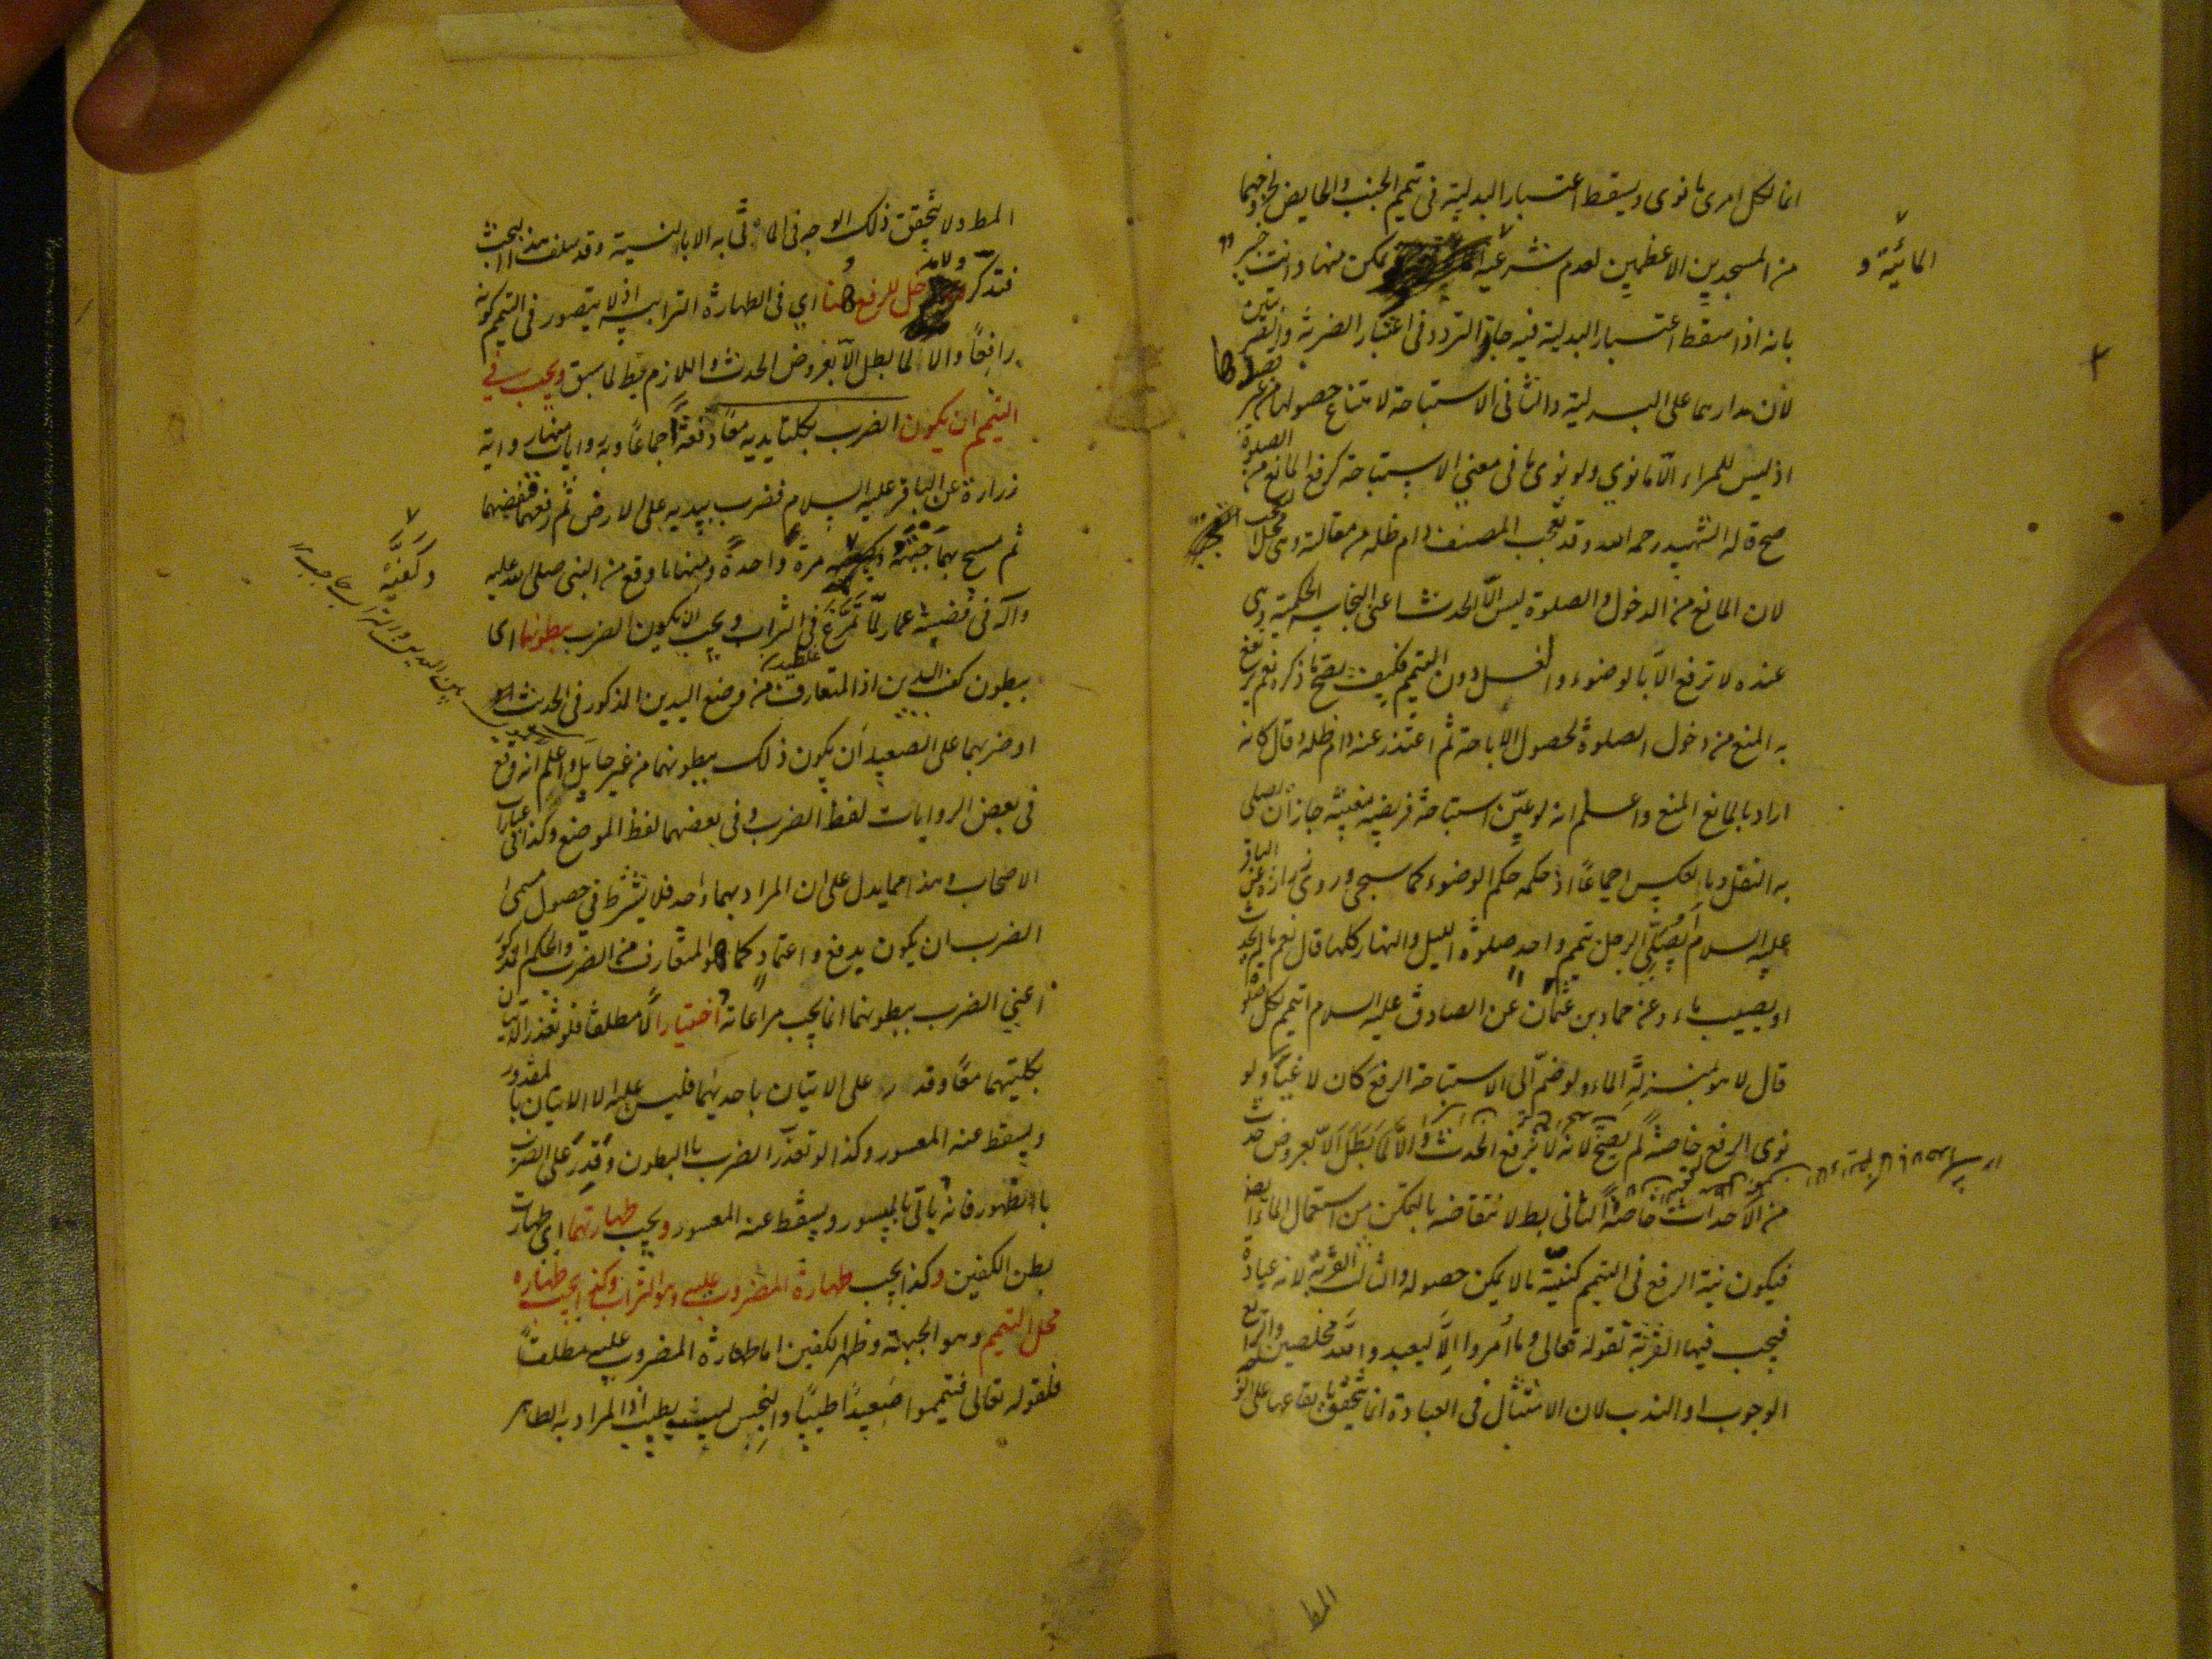 انما لكل امرئ ما نوى ويسقط اعتبار البدلية في تيمم الجنب والحايض لخروجهما
من المسجدين الاعظمين لعدم شرعية المائية و يمكن منها وانت خبير
بانه اذا سقط اعتبار البدلية فيه جاء التردد في اعتبار الضربة والضربتين
لان مدارهما على البدلية والثاني الاستباحة لامتناع حصولها من غير قصدها
اذ ليس للمراء الا ما نوي ولو نوى ما في معنى الاستباحة كرفع المانع من الصلوة
صح قاله الشهيد رحمه الله وقد تعجب المصنف دام ظله من مقالته وهي محل التعجب
لان المانع من الدخول في الصلوة ليس الا الحدث اعني النجاسة الحكمية وهي
عنده لا ترفع الا بالوضوء والغسل دون التيمم فكيف يصح ما ذكره نعم يرتفع
به المنع من دخول الصلوة لحصول الاباحة ثم اعتذر عنه دام ظله وقال كانه
اراد بالمانع المنع واعلم انه لو عين استباحة فريضة معينة جاز ان يصلى
به النفل وبالعكس اجماعا اذ حكمه حكم الوضوء كما سيجئ وروى زرارة عن الباقر
عليه السلام ايصلي الرجل بتيمم واحد صلوة الليل والنهار كلها قال نعم ما لم يحدث
او يصيب ماء وعن حماد بن عثمان عن الصادق عليه السلام اتيمم لكل صلوة
قال لا هو بمنزلة الماء ولو ضم الى الاستباحة الرفع كان لاغيا ولو
نوى الرفع خاصة لم يصح لانه لا يرفع الحدث والا لما بطل الا بعروض حدث
من الاحداث خاصة الثاني بط لانتقاضه بالتمكن من استعمال الماء ايضا
فيكون نية الرفع في التيمم كنية ما لا يمكن حصوله والثالث القربة لانه عبادة
فيجب فيها القربة لقوله تعالى وما امروا الا ليعبدوا الله مخلصين والرابع
الوجوب او الندب لان الامتثال في العبادة انما يتحقق بايقاعها على الوجه
المط
المط ولا يتحقق ذلك الوجه في الماتي به الا بالنية وقد سلف هذا البحث
فتذكر ولا مدخل للرفع هنا اي في الطهارة الترابية اذ لا يتصور في التيمم كونه
رافعا والا لما بطل الا بعروض الحدث واللازم بط لما سبق ويجب في
التيمم ان يكون الضرب بكلتا يديه معا دفعة اجماعا وبه روايات منها رواية
زرارة عن الباقر عليه السلام فضرب بيديه على الارض ثم رفعهما فنفضهما
ثم مسح بهما جبهته وكفيه مرة واحدة ومنها ما وقع من النبي صلى الله عليه
وآله في قضية عمار لما تمرغ في التراب ويجب ان يكون الضرب ببطونهما اي
ببطون كف اليدين اذ المتعارف من وضع اليدين المذكور في الحديث
او ضربهما على الصعيد ان يكون ذلك ببطونهما من غير حايل واعلم انه وقع
في بعض الروايات لفظ الضرب وفي بعضها لفظ الموضع وكذا في عبارات
الاصحاب وهذا مما يدل على ان المراد بهما واحد فلا يشترط في حصول مسمى
الضرب ان يكون بدفع واعتماد كما هو المتعارف من الضرب والحكم المذكور
اعني الضرب ببطونهما انما يجب مراعاته اختيارا لا مطلقا فلو تعذر الاتيان
بكليتهما معا وقدر على الاتيان باحديهما فليس عليه الا الاتيان بالمقدور
ويسقط عنه المعسور وكذا لو تعذر الضرب بالبطون وقدر على الضرب
بالظهور فانه ياتي بالميسور ويسقط عنه المعسور ويجب طهارتهما اي طهارت
بطن الكفين وكذا يجب طهارة المضروب عليه وهو التراب وكذا يجب طهاره
محل التيمم وهو الجبهة وظهر الكفين اما طهارة المضروب عليه مطلقا
فلقوله تعالى فتيمموا صعيدا طيبا والنجس ليس بطيب اذ المراد به الطاهر